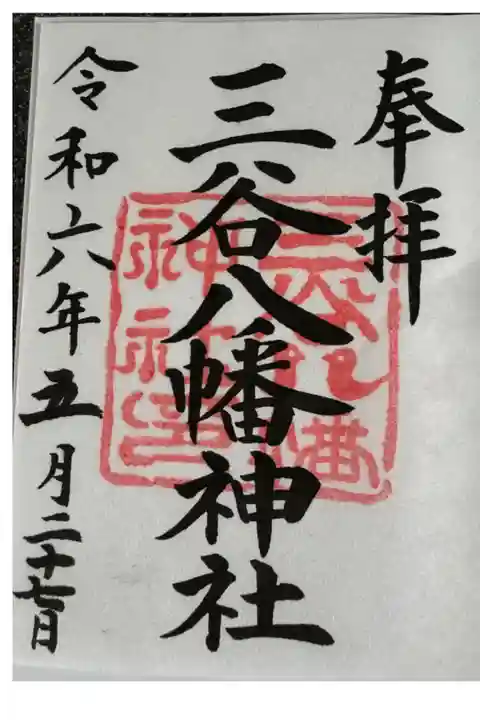 奉拝
三谷八幡神社
令和六年五月二十七日